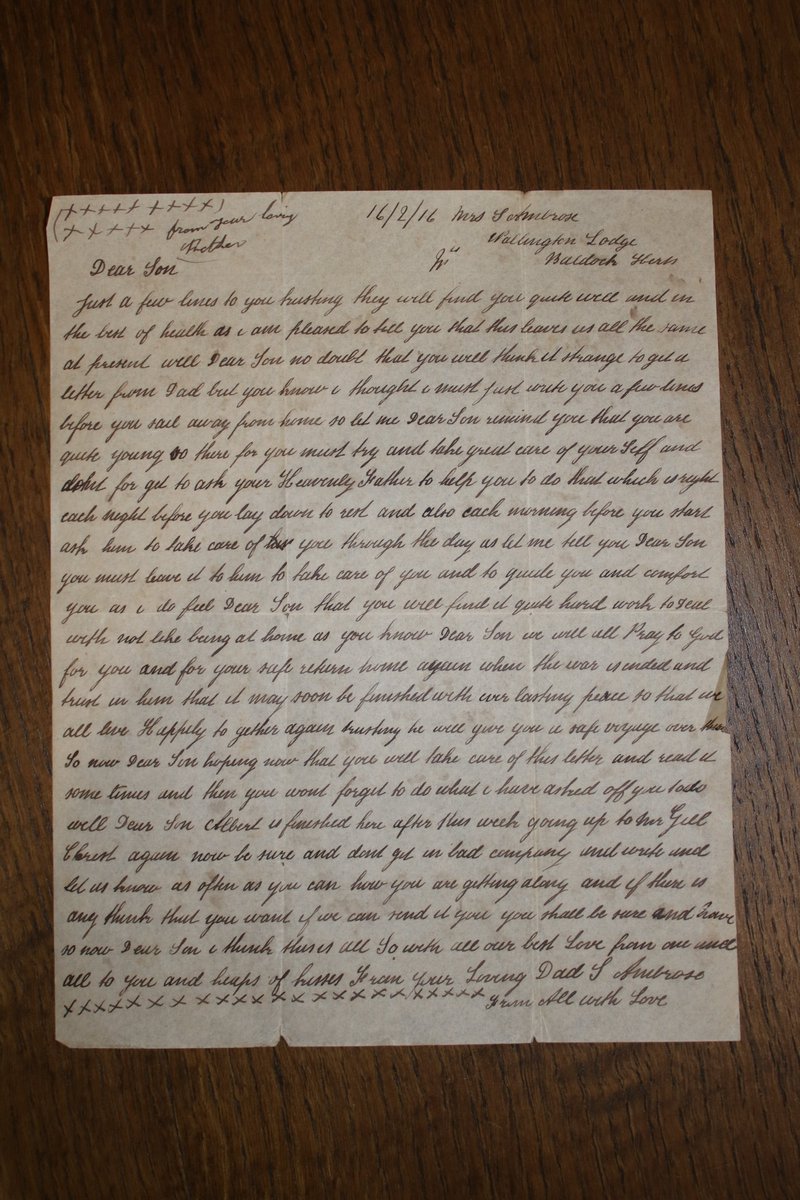 x x x x x x x x x
x x x x x from your loving
Mother
16/2/16 Mrs S Ambrose
Wallington Lodge
Baldock Herts
Dear Son
Just a few lines to you trusting they will find you quite well and in
the best of health as i am pleased to tell you that this leaves us all the same
at present well Dear Son no doubt that you will think it strange to get a
letter from Dad but you know i thought i must just write you a few lines
before you sail away from home so let me Dear Son remind you that you are
quite young so there for you must try and take great care of your Self and
dont for get to ask your Heavenly Father to help you to do that which is right
each neght before you lay down to rest and also each morning before you start
ask him to take care of you through the day as let me tell you Dear Son
you must leave it to him to take care of you and to guide you and comfort
you as i do feel Dear Son that you will find it quite hard work to Deal
with not like being at home as you know Dear Son we will all Pray to God
for you and for your safe return home again when the war is ended and
trust in him that it may soon be finished with ever lasting peace so that we
all live Happily to gether again trusting he will give you a safe voyage over
So now Dear Son hoping now that you will take care of this letter and read it
some times and then you wont forget to do what i have asked off you to do
well Dear Son Albert is finished here after this week going up to Mr Gill
Chrest again now be sure and dont get in bad company and write and
let us know as often as you can how you are getting along and if there is
any think that you want if we can send it you you shall be sure and have
so now Dear Son i think this is all So with all our best Love from one and
all to you and heaps of kisses From your Loving Dad S Ambrose
x x x x x x x x x x x x x x x x x x x x x x x x From All with Love